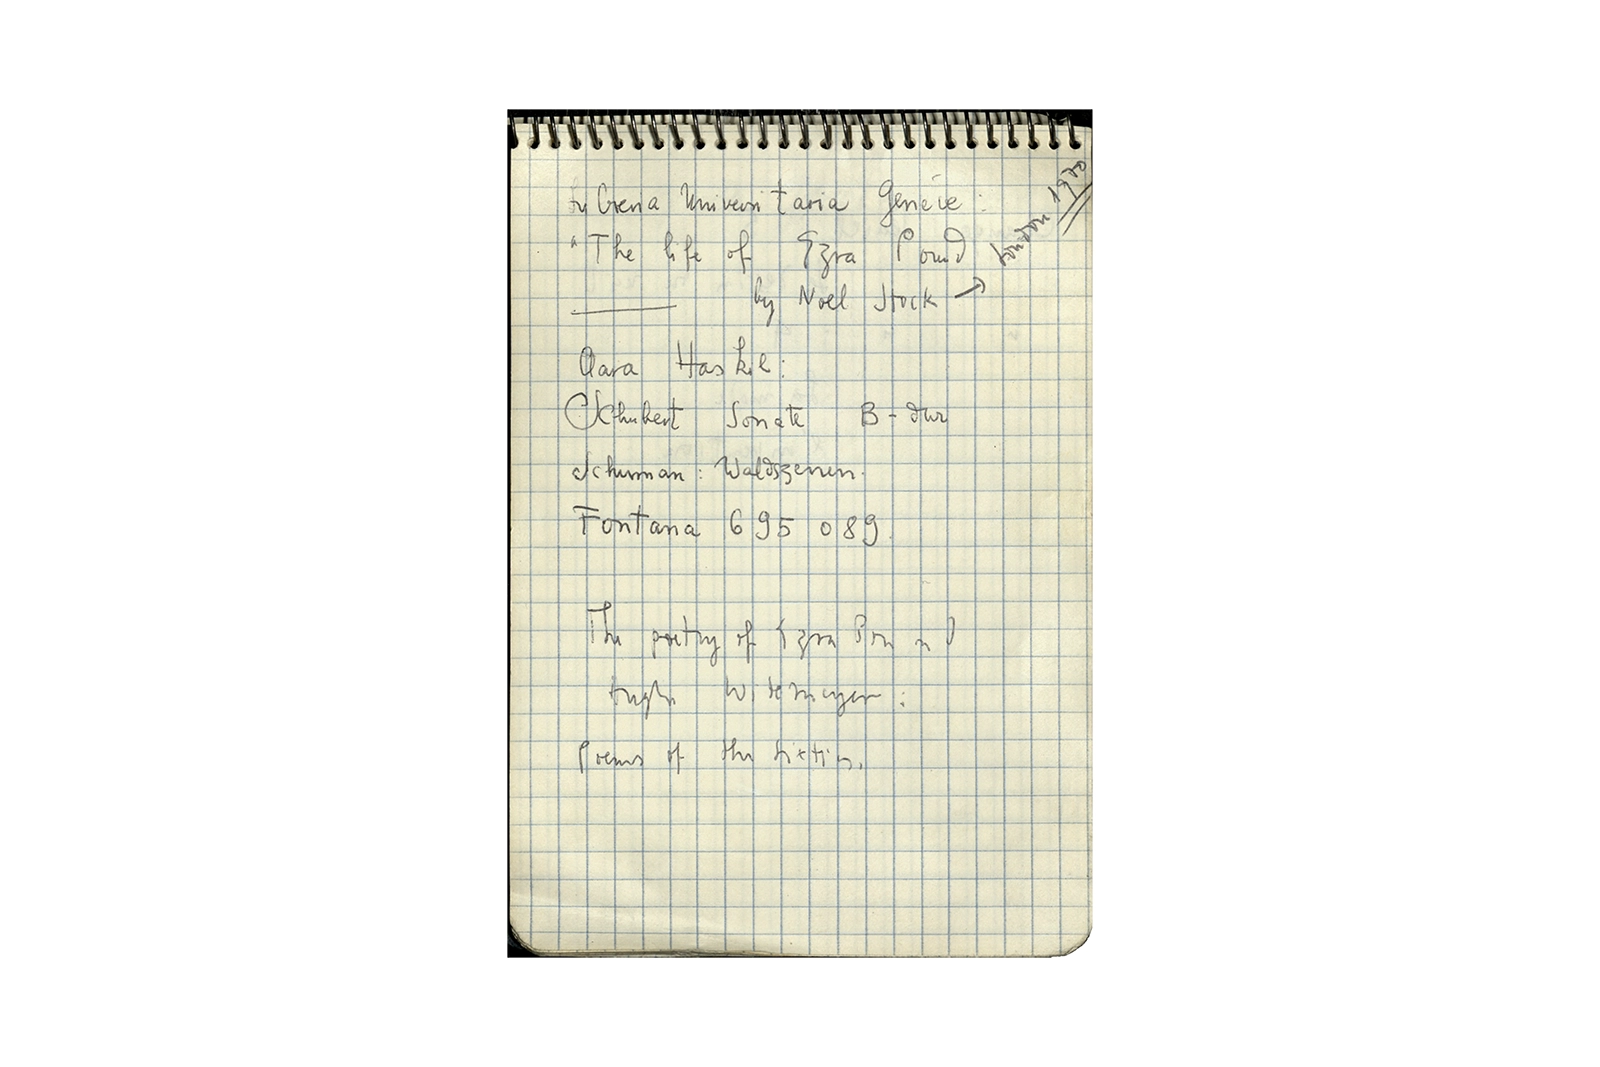 Universitaria Genève:
"The life of Ezra Pound
by Noel Stock →
London 1970
Clara Haskil:
Schubert Sonate B-dur
Schuman: Waldszenen.
Fontana 695 089.
The poetry of Ezra Pound
Hugh Witemeyer:
Poems of the sixties.